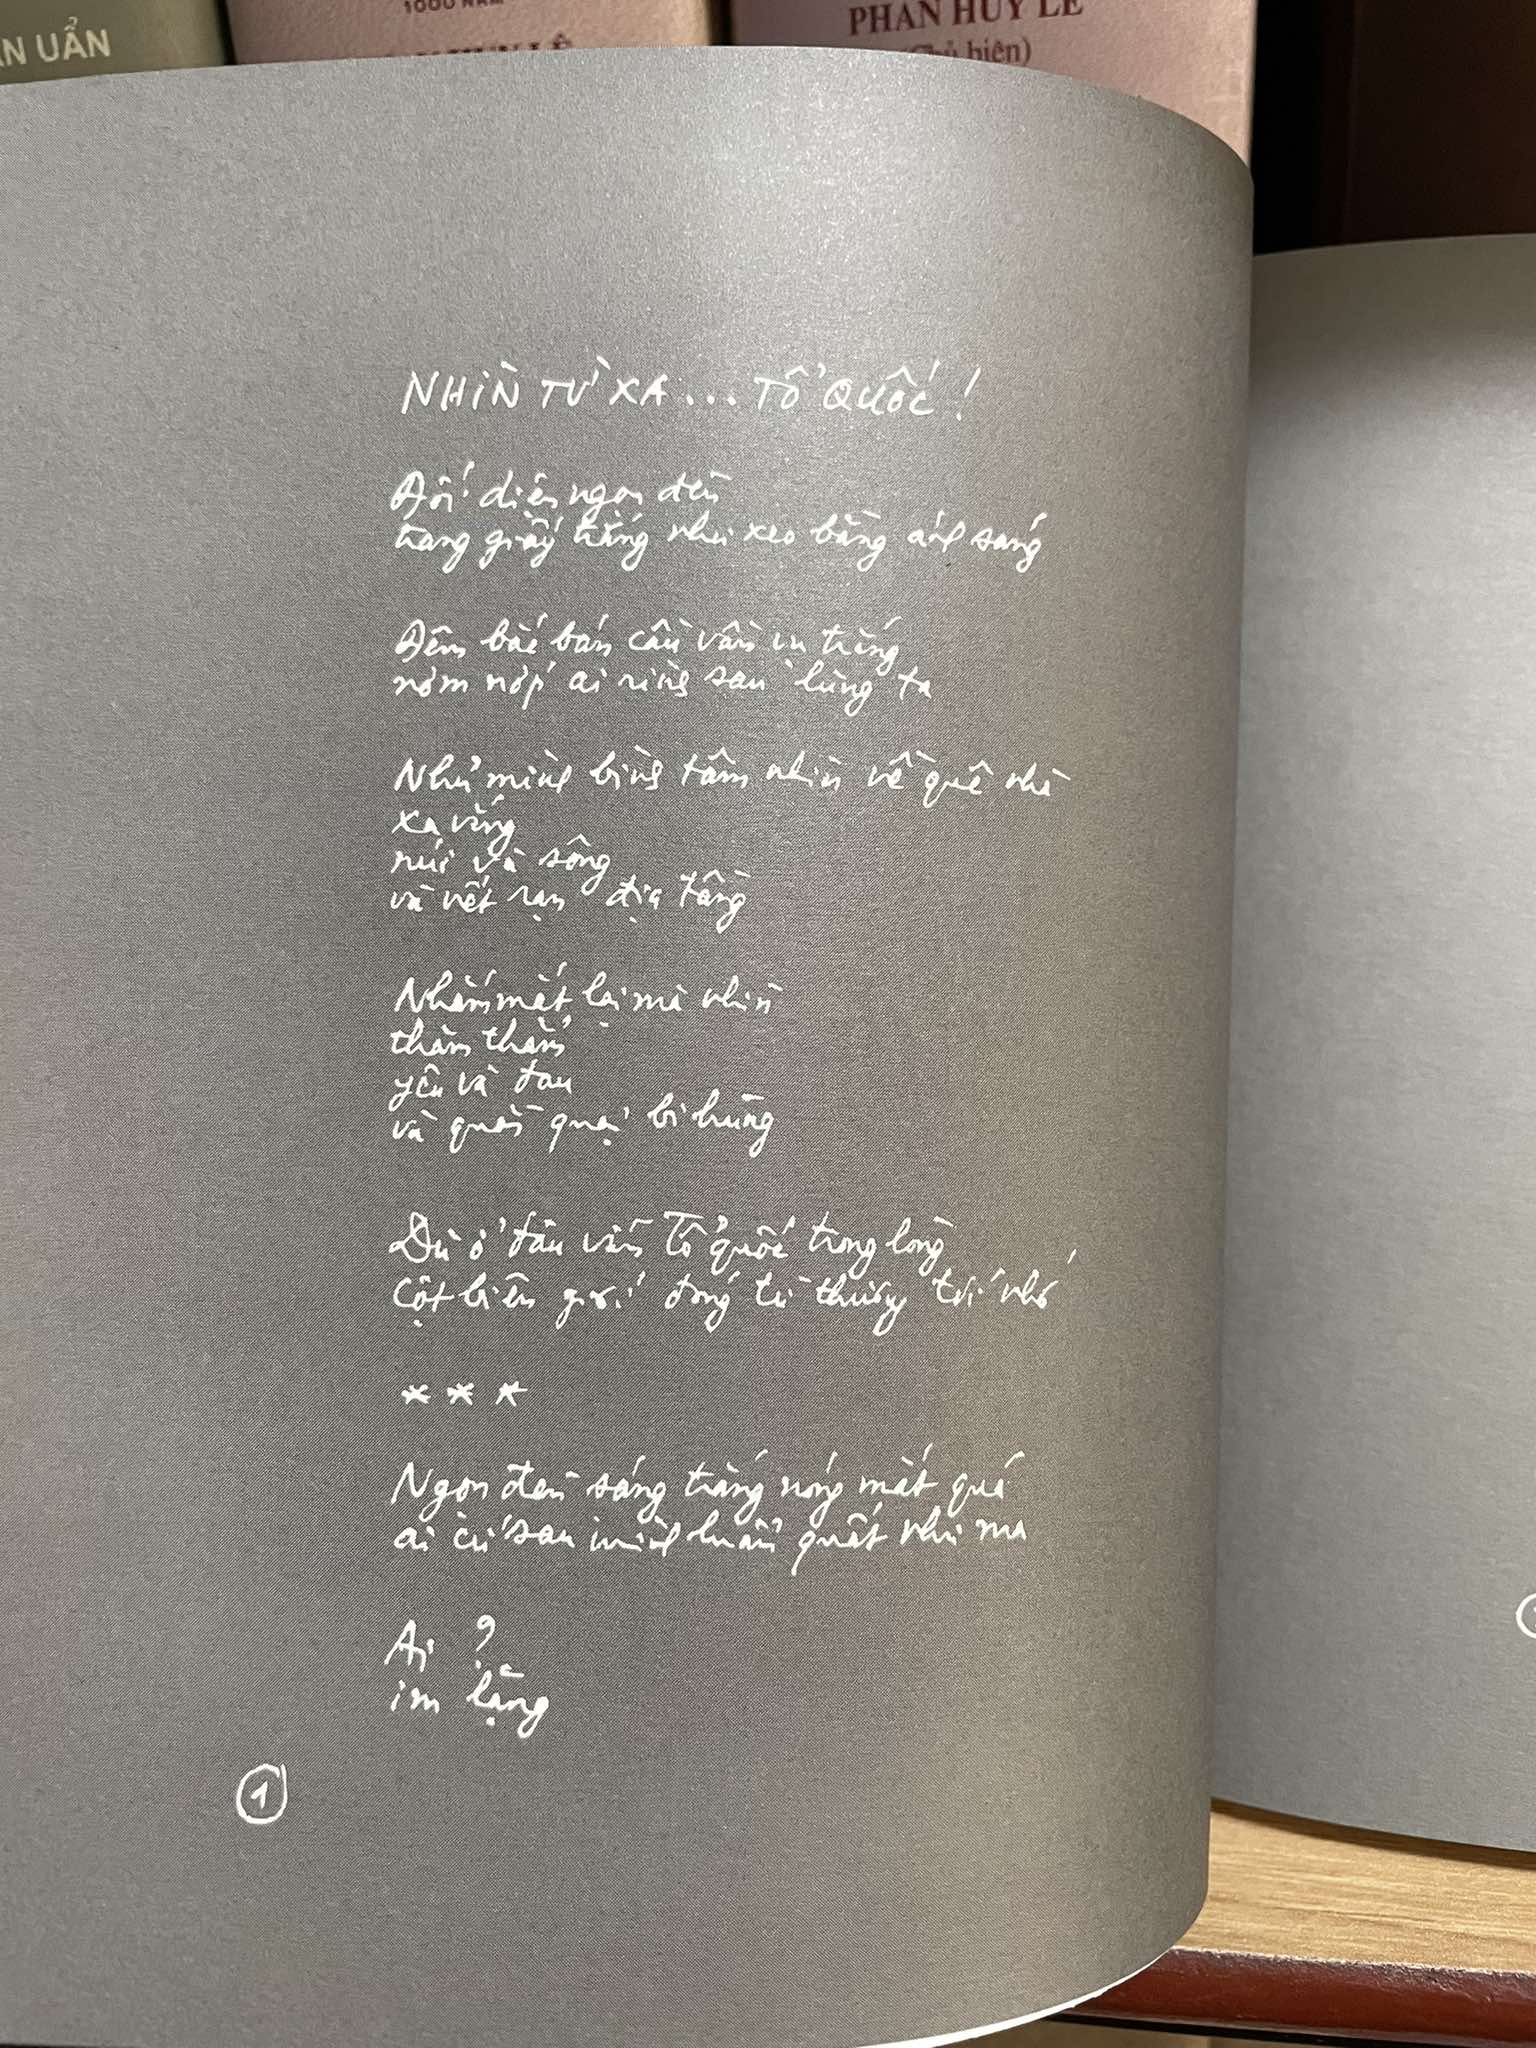 N UẨN
1000 NĂM
PHAN HUY LÊ
(Chủ biên)
NHÌN TỪ XA... TỔ QUỐC!
Đối diện ngọn đèn
trang giấy trắng như xeo bằng ánh sáng
Đêm bắc bán cầu vần vụ trắng
nơm nớp ai rình sau lưng ta
Nhủ mình bình tâm nhìn về quê nhà
xa vắng
núi và sông
và vết rạn địa tầng
Nhắm mắt lại mà nhìn
thăm thẳm
yêu và đau
và quằn quại bi hùng
Dù ở đâu vẫn Tổ quốc trong lòng
Cột biên giới đóng từ thương tới nhớ
***
Ngọn đèn sáng trắng nóng mắt quá
ai cứ sau mình lẩn quất như ma
Ai ?
im lặng
1